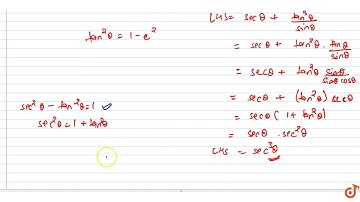 tan²θ = 1 - e²
sec²θ - tan²θ = 1 ✓
sec²θ = 1 + tan²θ
LHS = secθ + tan³θ/sinθ
= secθ + tan²θ · tanθ/sinθ
= secθ + tan²θ sinθ/sinθcosθ
= secθ + (tan²θ) secθ
= secθ (1 + tan²θ)
= secθ · sec²θ
LHS = sec³θ